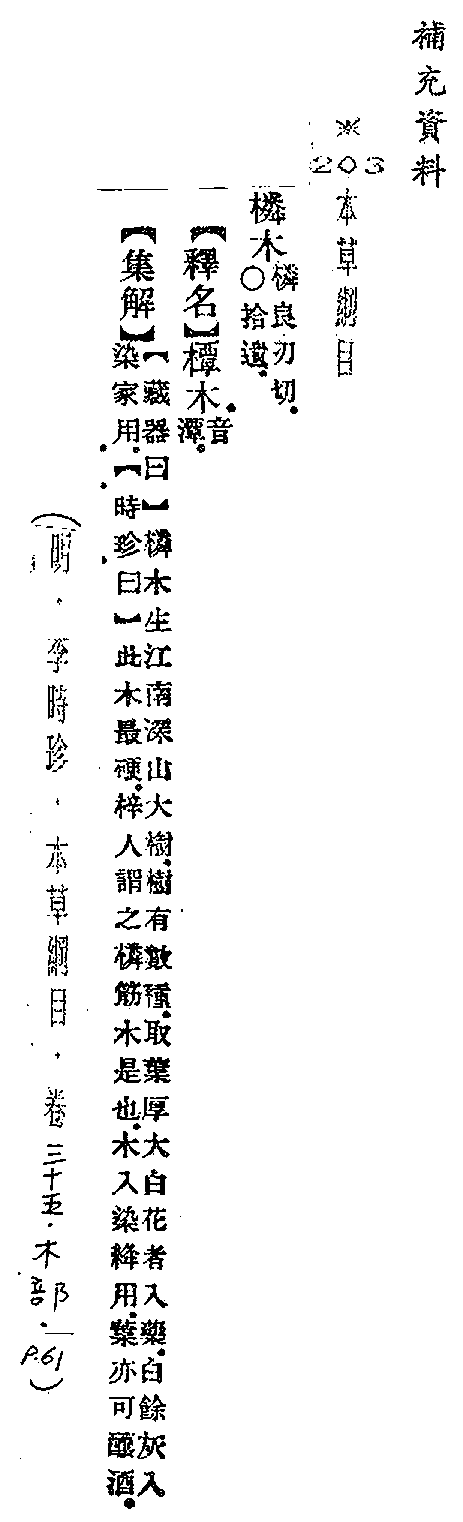 補充資料
※
203 本草綱目
橉木橉良刃切。
○拾遺。
【釋名】橝木。音潭。
【集解】【藏器曰】橉木生江南深山大樹。樹有數種。取葉厚大白花者入藥。白餘灰入
染家用。【時珍曰】此木最硬。梓人謂之橉筋木是也。木入染絳用。葉亦可釀酒。
(明．李時珍．本草綱目．卷三十五．木部．P.61)